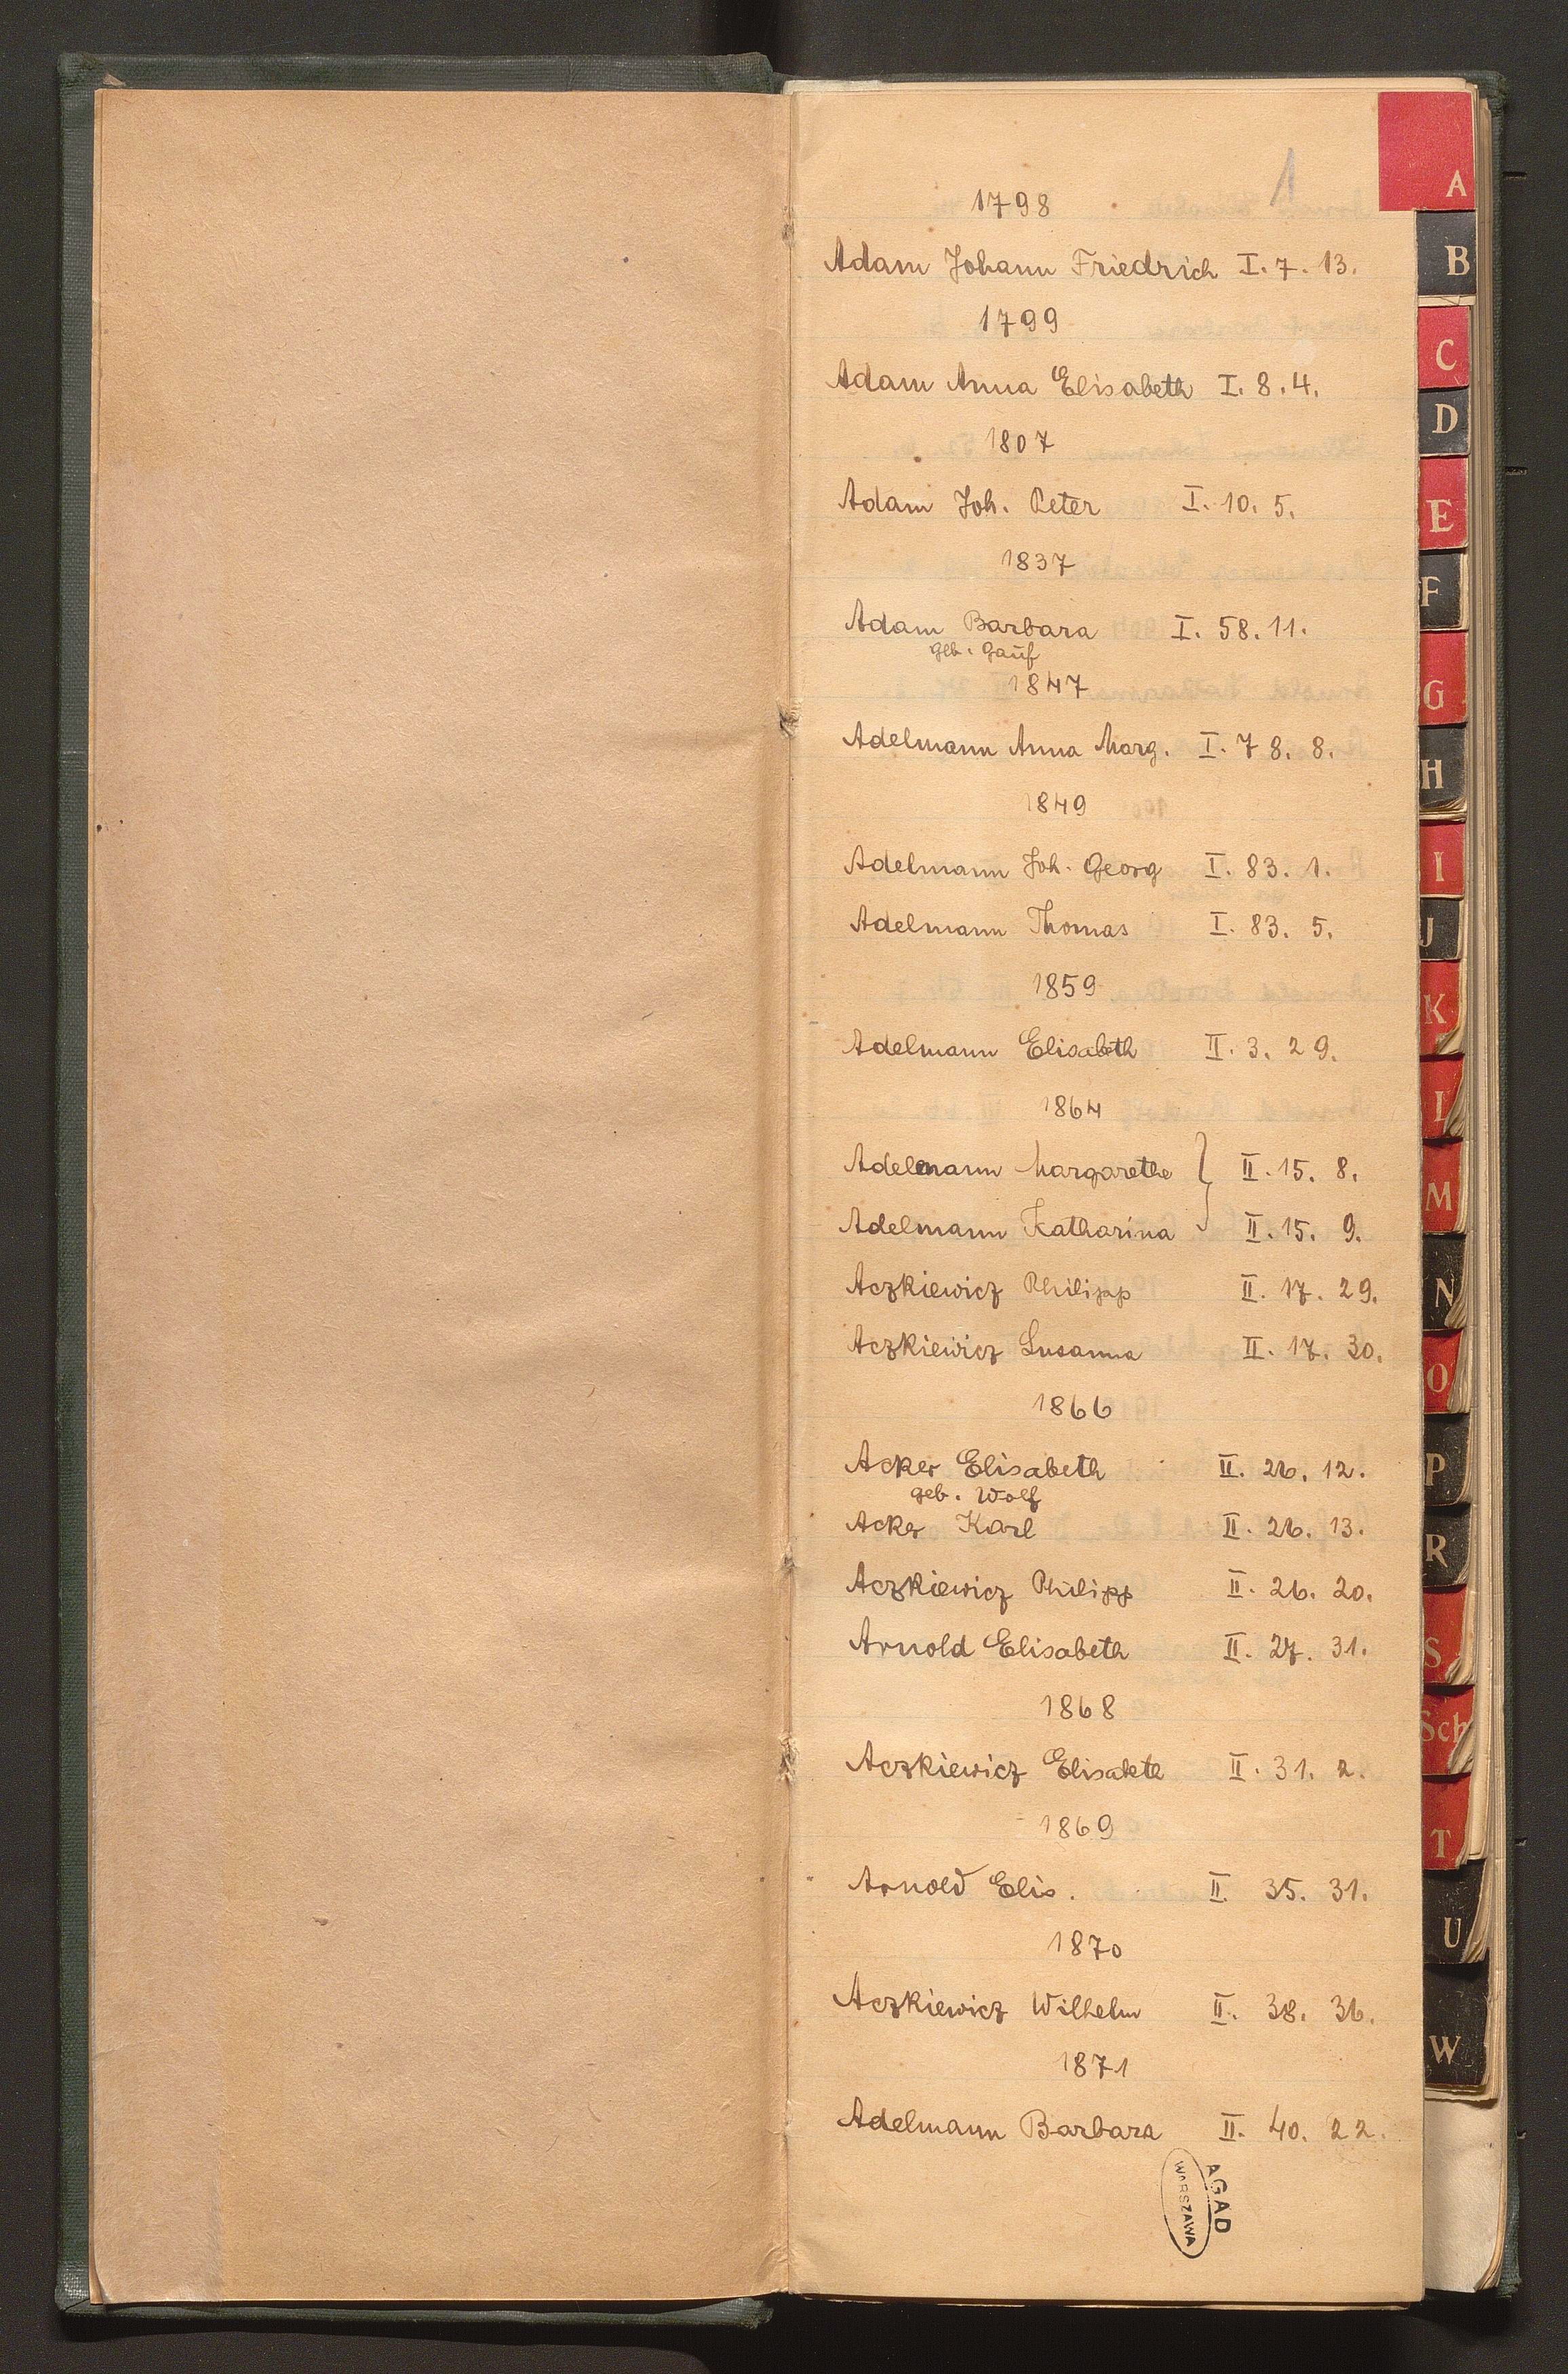 1
1798
Adam Johann Friedrich I. 7. 13.
1799
Adam Anna Elisabeth I. 8. 4.
1807
Adam Joh. Peter I. 10. 5.
1837
Adam Barbara I. 58. 11.
geb. Gauf
1847
Adelmann Anna Marg. I. 78. 8.
1849
Adelmann Joh. Georg I. 83. 1.
Adelmann Thomas I. 83. 5.
1859
Adelmann Elisabeth II. 3. 29.
1864
Adelmann Margarethe } II. 15. 8.
Adelmann Katharina II. 15. 9.
Aczkiewicz Philipp II. 17. 29.
Aczkiewicz Susanna II. 17. 30.
1866
Acker Elisabeth II. 26. 12.
geb. Wolf
Acker Karl II. 26. 13.
Aczkiewicz Philipp II. 26. 20.
Arnold Elisabeth II. 27. 31.
1868
Aczkiewicz Elisabeth II. 31. 2.
1869
Arnold Elis. II. 35. 31.
1870
Aczkiewicz Wilhelm II. 38. 36.
1871
Adelmann Barbara II. 40. 22.
AGAD
WARSZAWA
A
B
C
D
E
F
G
H
I
J
K
L
M
N
O
P
R
S
Sch
T
U
W